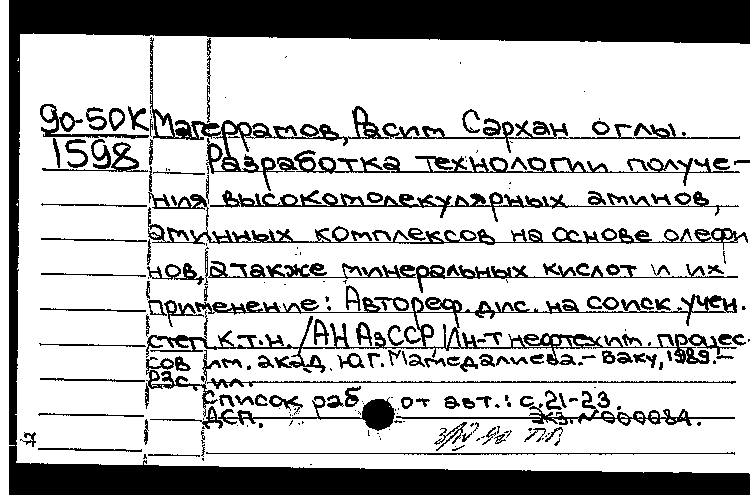 90-50К Магеррамов, Расим Сархан оглы.
1598 Разработка технологии получе-
ния высокомолекулярных аминов,
аминных комплексов на основе олефи
нов, а также минеральных кислот и их
применение: Автореф. дис. на соиск. учен.
степ к.т.н. /АН АзССР Ин-т нефтехим. процес-
сов им. акад. Ю.Г. Мамедалиева.- Баку, 1989.-
23с.: ил.
Список раб от авт.: с.21-23.
ДСП. Экз. N000084.